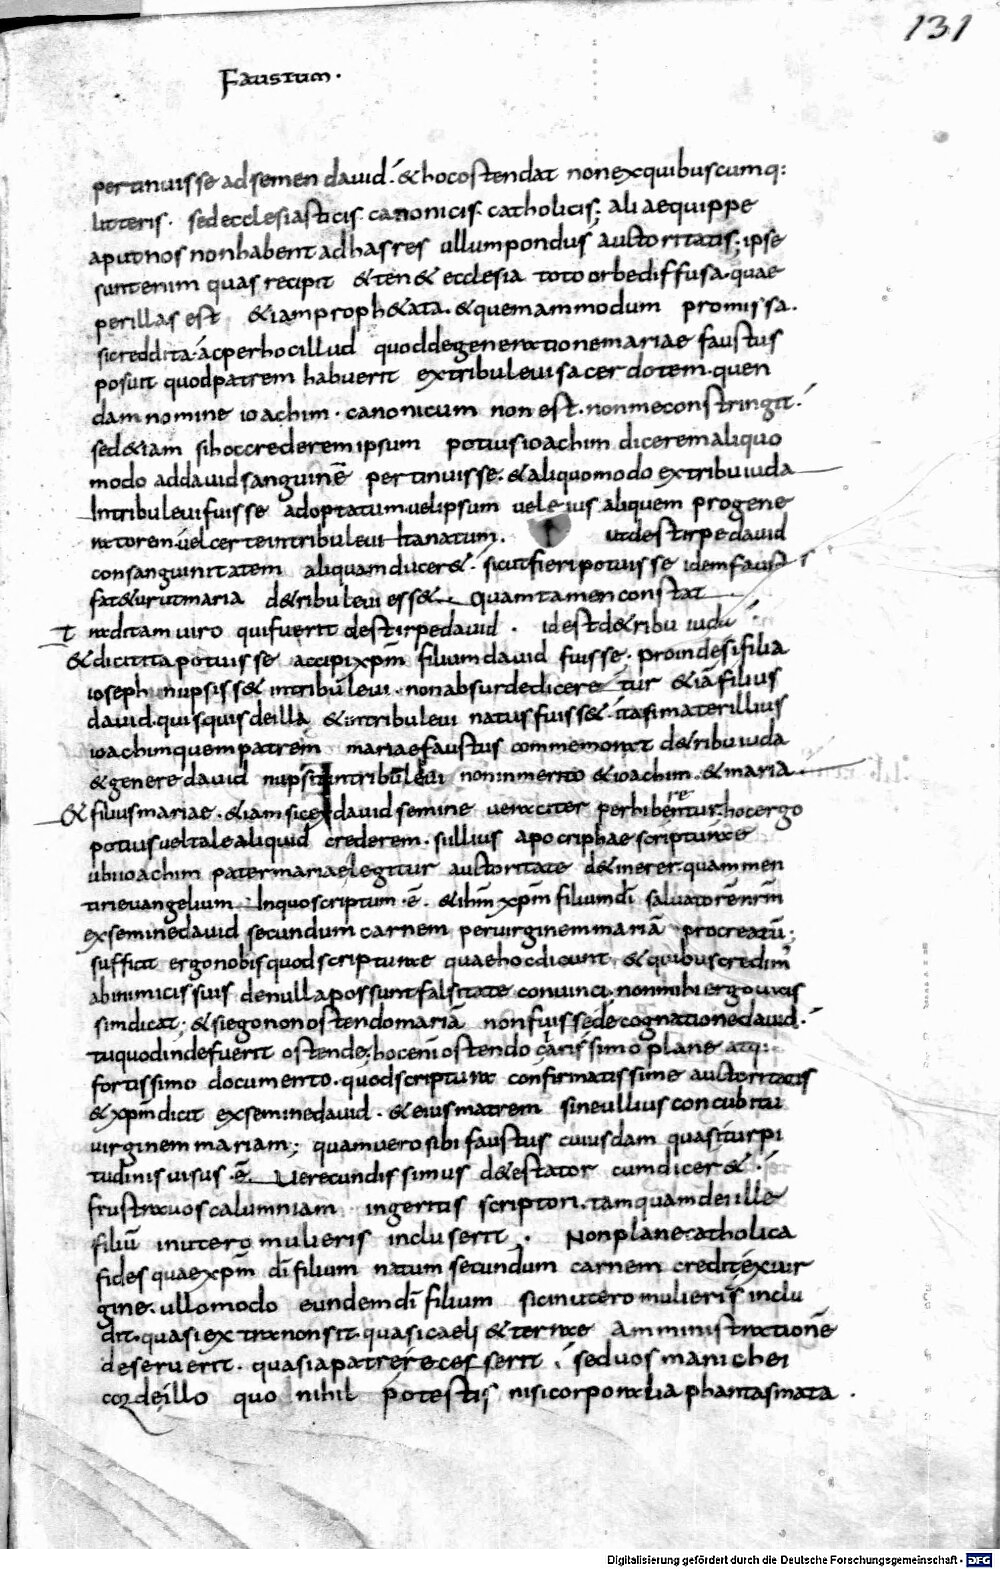 131
Faustum.
pertinuisse adsemen dauid. & hoc ostendat nonexquibuscumq:
litteris. sedecclesiasticis canonicis catholicis; aliaequippe
aputnos nonhabent adhasres ullumpondus auctoritatis; ipse
suntenim quas recipit & ten& ecclesia toto orbediffusa. quae
perillas est &iamproph&ata. &quemammodum promissa.
sicreddita. acperhocillud quoddegenerationemariae faustus
posuit quodpatrem habuerit extribuleui sacerdotem. quen
damnomine ioachim. canonicum non est. nonmeconstringit.
sed&iam sihoccrederem ipsum potiusioachim diceremaliquo
modo addauidsanguinē pertinuisse. &aliquomodo extribuiuda
Intribuleuifuisse adoptatum. uelipsum uel eius aliquem progene
ratorem. uel certeintribuleui itanatum. utdestirpedauid
consanguinitatem aliquamducer&. sicutfieripotuisse idemfaust
fat&urutmaria d&ribuleui ess&. Quamtamenconstat
t raditamuiro quifuerit destirpedauid. idestd&ribu iuda
&dicitita potuisse accipi xp̄m filiumdauid fuisse. Proindesifilia
ioseph nupsiss& intribuleui. nonabsurdedicere tur &iā filius
dauid. quisquis deilla &intribuleui natusfuiss&. itasimaterillius
ioachimquempatrem mariaefaustus commemorat d&ribuiuda
&genere dauid nupsit intribuleui noninmerito &ioachim. &maria.
& filius mariae. &iam sicex dauid semine ueraciter perhiberentur. hocergo
potiusueltalealiquid crederem. sillius apocriphae scripturae
ubiioachim patermariaelegitur auctoritate d&inerer. quammen
tirieuangelium. Inquoscriptum. ē. &ih̄m xp̄m filiumdī saluatorēnr̄m
exseminedauid secundumcarnem peruirginemmariā procreatū;
sufficit ergonobisquodscripturae quaehocdicunt &quibuscredim
abinimicissuis denullapossuntfalsitate conuinci. nonmihi ergouicis
simdicat; &siegononostendomariā nonfuissedecognationedauid.
tuquodindefuerit ostende; hocenī ostendo clarissimo plane atq:
fortissimo documento. quodscriptura confirmatissime auctoritatis
&xp̄mdicit exseminedauid. &eiusmatrem sineullius concubitu
uirginem mariam; quamuero sibi faustus cuiusdam quasiturpi
tudinis uisus. ē. Uerecundissimus d&estator cumdicer&.
frustrauos calumniam ingeritis scriptori. tamquamdeille
filiū inutero mulieris incluserit. Nonplane catholica
fides quaexp̄m dī filium natum secundum carnem creditexuir
gine. ullomodo eundemdī filium sicinuteromulieris inclu
dit. quasi extranonsit. quasicaeli &terrae Amministrationē
deseruerit. quasiapatrerecesserit. seduosmanichei
cordeillo quo nihil potestis nisicorporalia phantasmata.
Digitalisierung gefördert durch die Deutsche Forschungsgemeinschaft - DFG